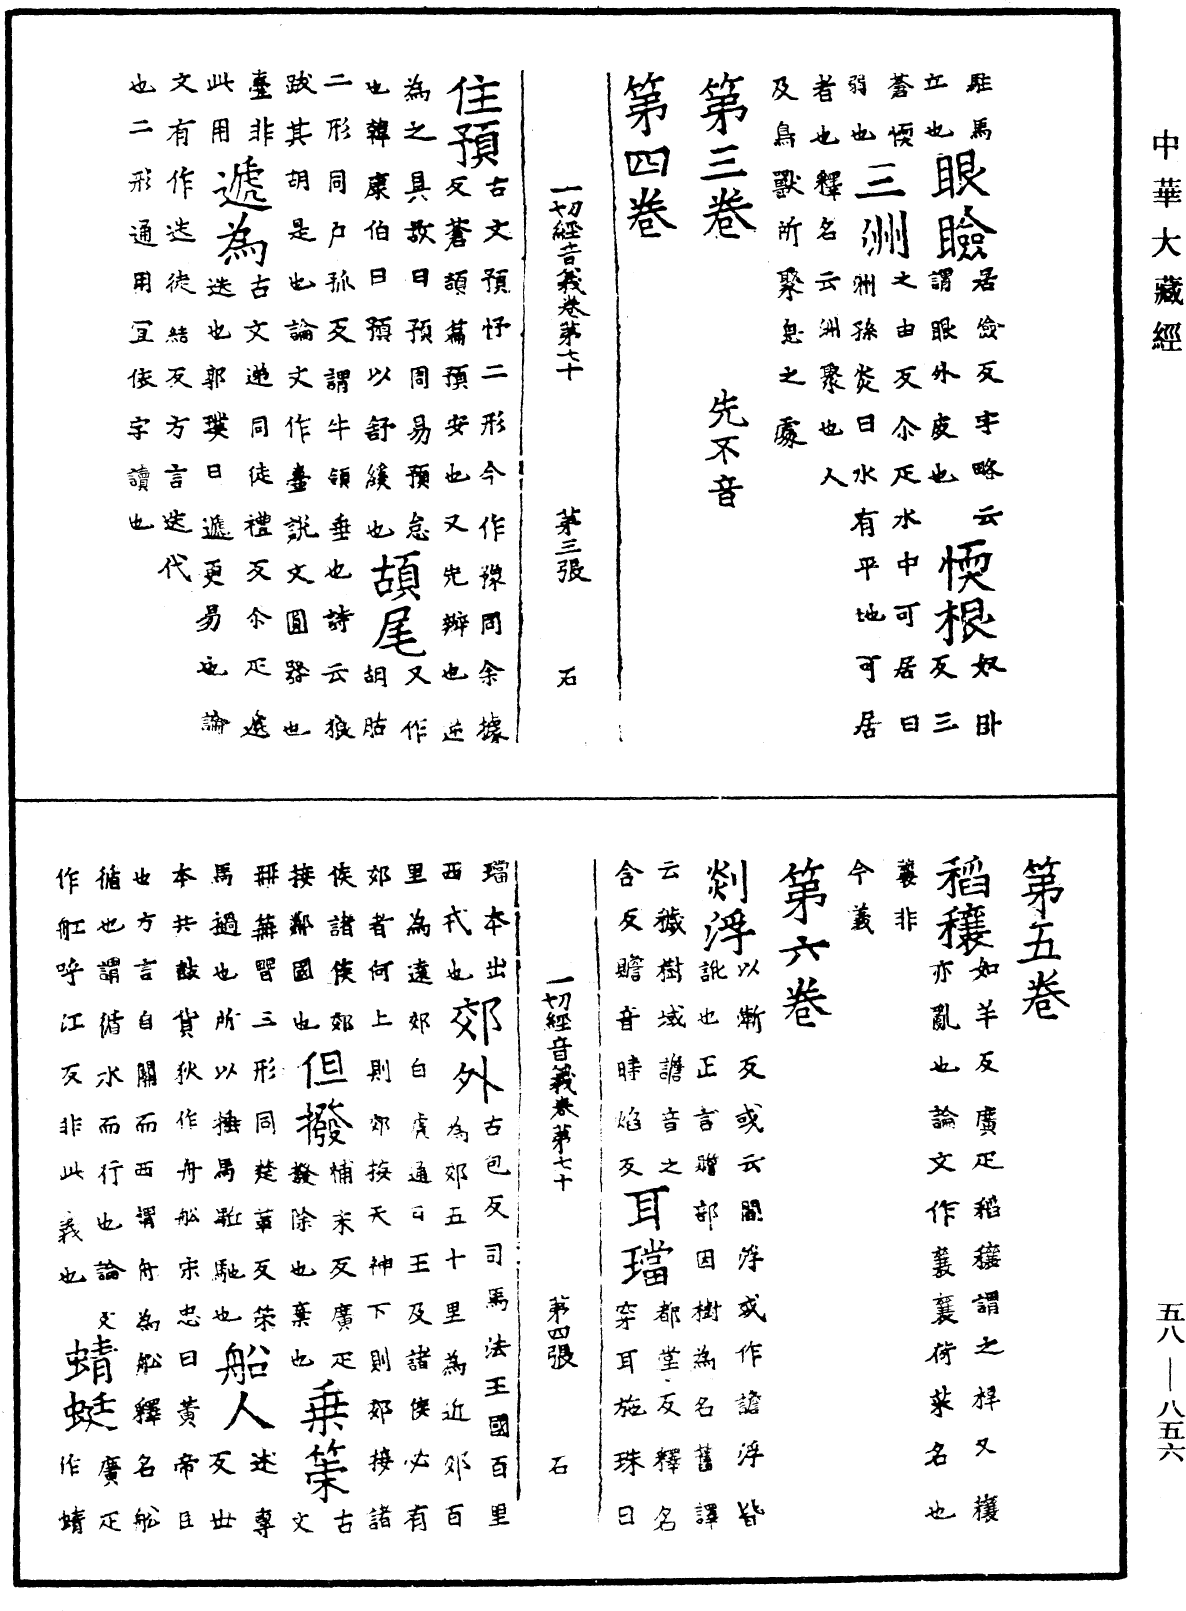 中華大藏經
駐馬
立也眼瞼居儉反字略云
謂眼外皮也㥠根奴臥反三
蒼㥠弱也三洲之由反尒疋水中可居曰
洲孫炎曰水有平地可居
者也釋名云洲聚也人
及鳥獸所聚息之處
第三卷 先不音
第四卷
一切經音義卷第七十 第三張 石
住預古文預忬二形今作豫同余據
反蒼頡篇預安也又先辦也逆
為之具故曰預周易預怠
也韓康伯曰預以舒緩也頡尾又作
胡咕
二形同戶孤反謂牛頷垂也詩云狼
跋其胡是也論文作壼說文圓器也
壼非
此用遞為古文递同徒禮反尒疋遞
迭也郭璞曰遞更易也論
文有作迭徒結反方言迭代
也二形通用宜依字讀也
第五卷
稻穰如羊反廣疋稻穰謂之稈又穰
亦亂也論文作蘘蘘荷菜名也
蘘非
今義
第六卷
剡浮以漸反或云閻浮或作譫浮皆
訛也正言贍部因樹為名舊譯
云穢樹城譫音之
含反贍音時焰反耳璫都堂反釋名
穿耳施珠曰
一切經音義卷第七十 第四張 石
璫本出
西戎也郊外古包反司馬法王國百里
為郊五十里為近郊百
里為遠郊白虎通曰王及諸侯必有
郊者何上則郊接天神下則郊接諸
侯諸侯郊
接鄰國也但撥補末反廣疋
撥除也棄也乗策古文
冊䇲䇿三形同楚革反策
馬檛也所以捶馬駈馳也船人述專
反世
本共鼓貨狄作舟舩宋忠曰黃帝臣
也方言自關而西謂舟為舩釋名舩
循也謂循水而行也論文
作舡呼江反非此義也蜻蜓廣疋
作蜻
五八—八五六